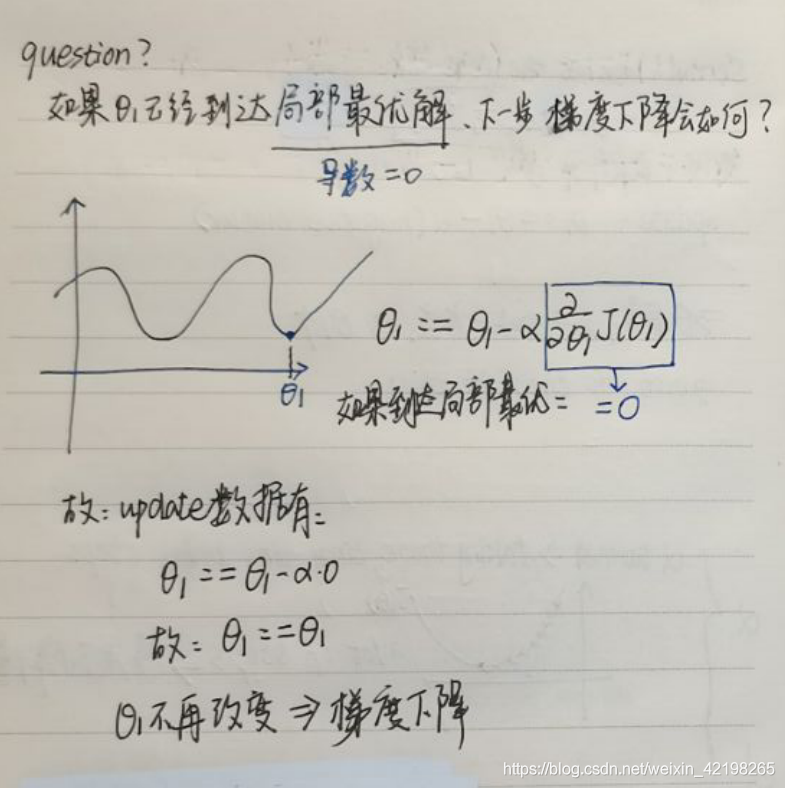 question?
如果θ₁已经到达局部最优解、下一步 梯度下降会如何?
导数=0
θ₁ := θ₁-α ∂/∂θ₁ J(θ₁)
θ₁
如果到达局部最优: =0
故: update数据有:
θ₁ := θ₁-α·0
故: θ₁ := θ₁
θ₁不再改变 ⇒ 梯度下降
https://blog.csdn.net/weixin_42198265